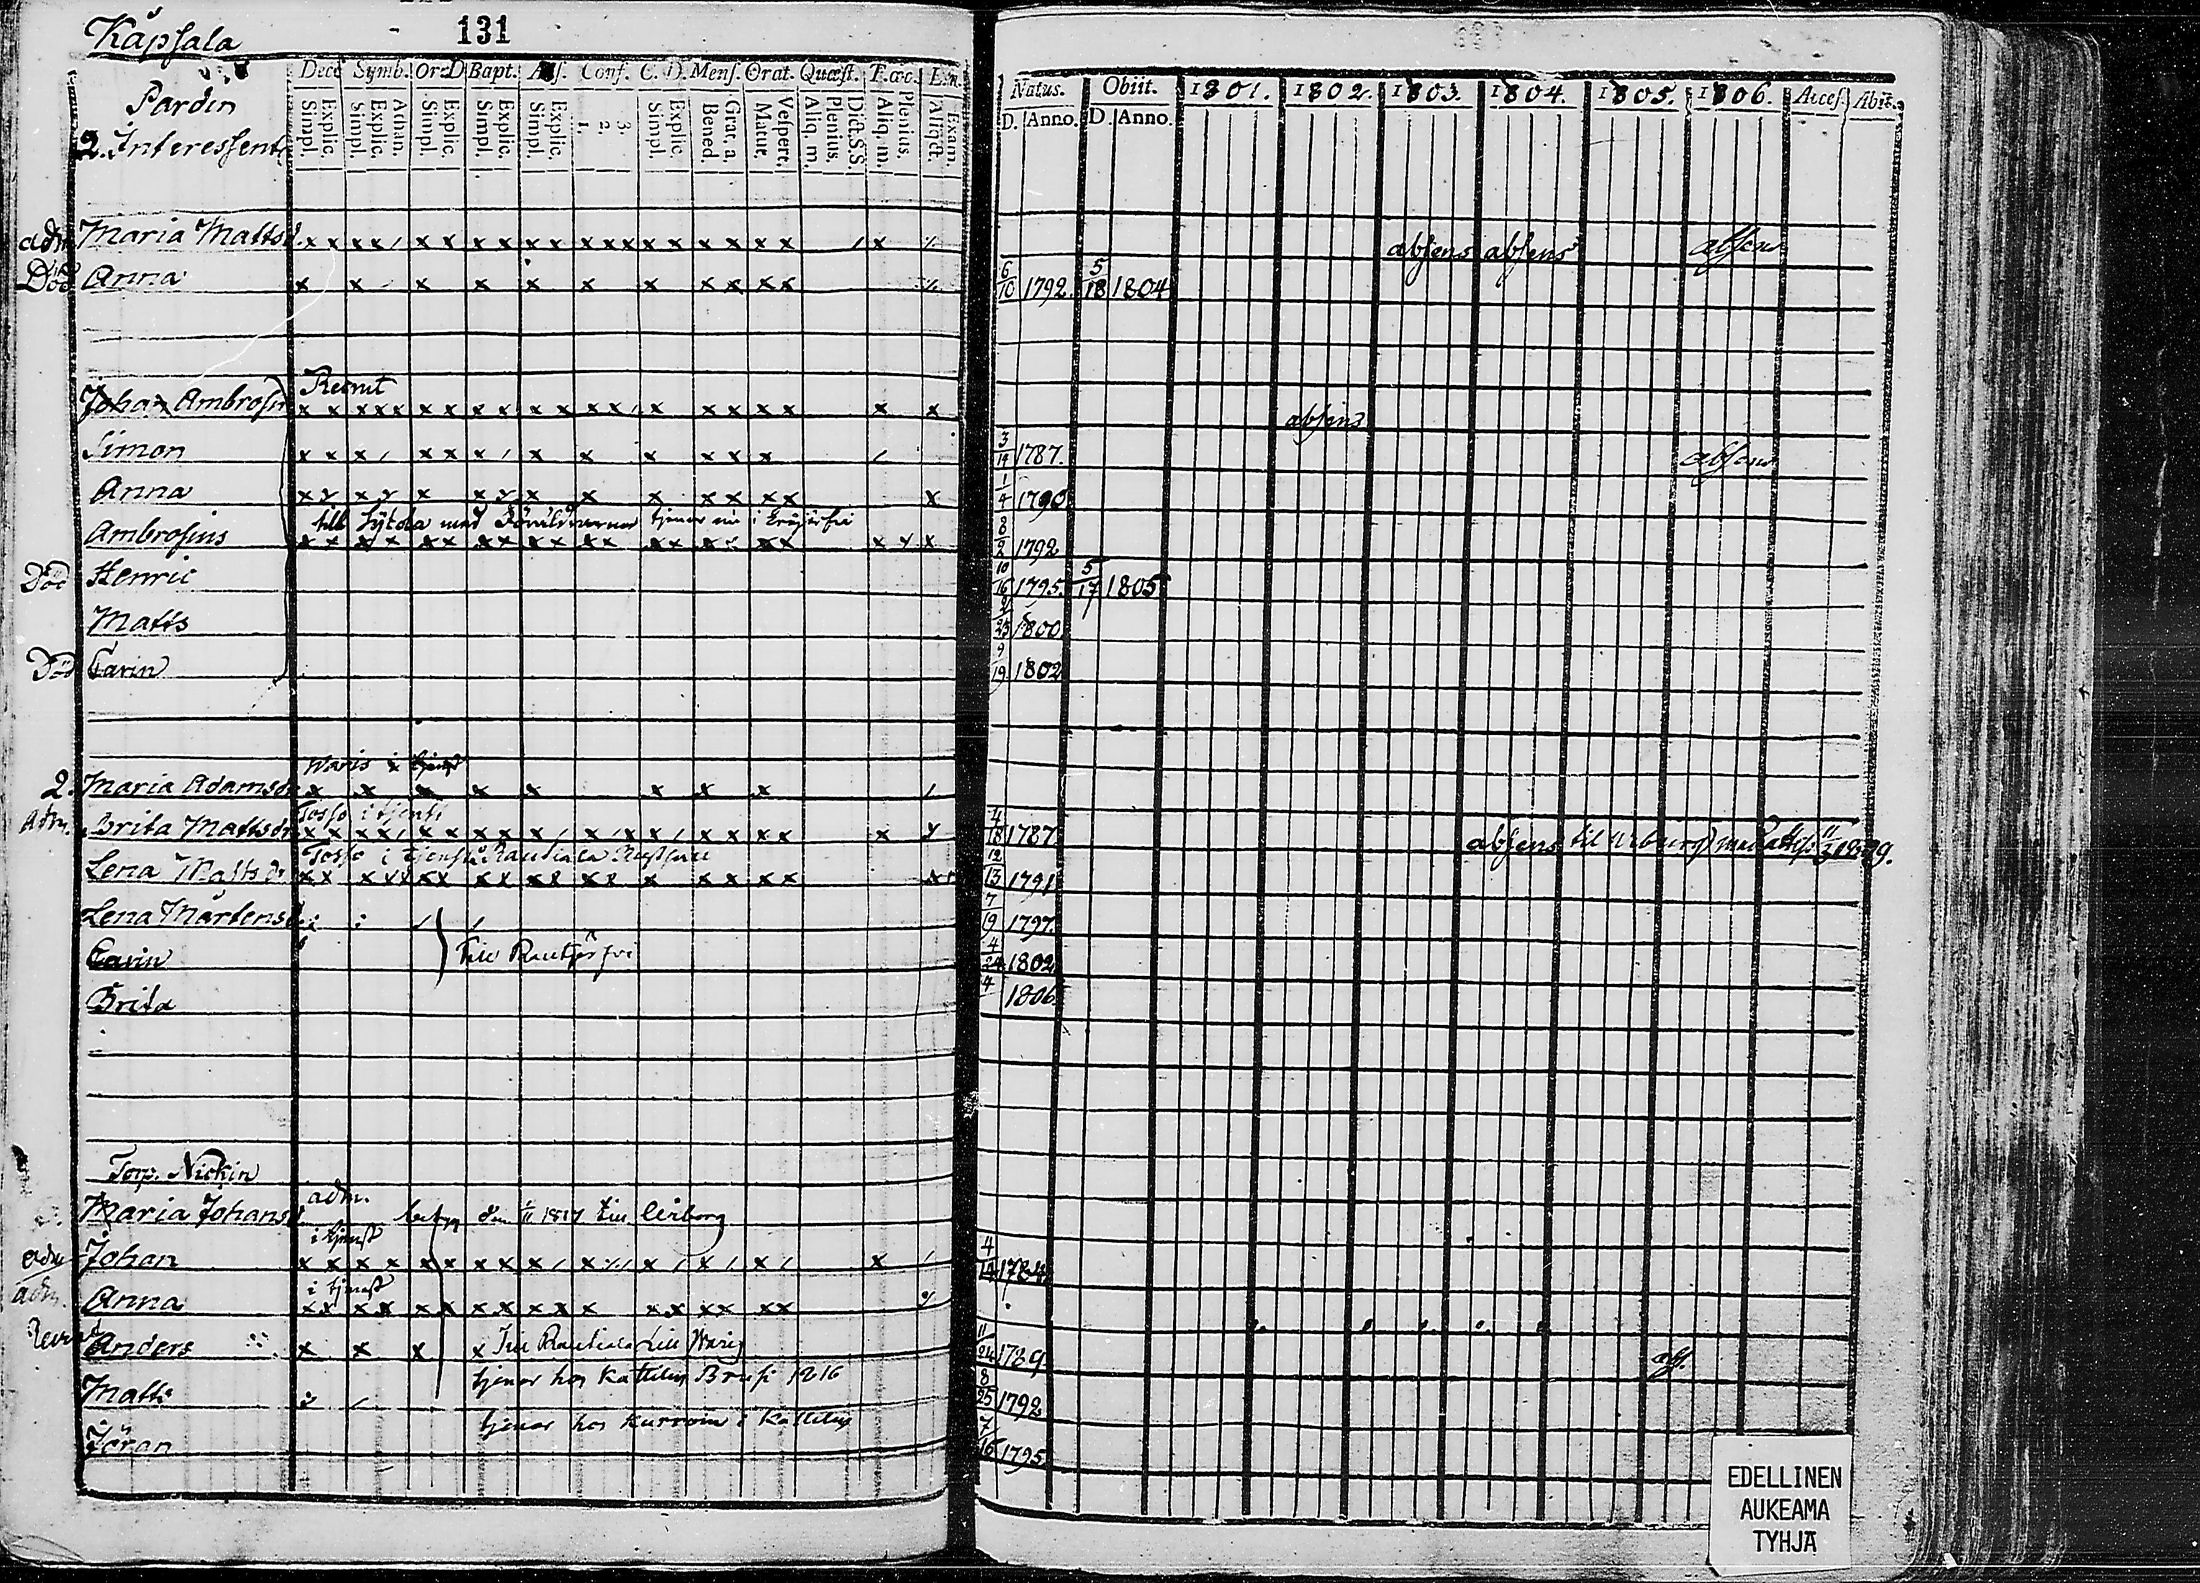 Kåpsala
131
Pardin
2. Interessent
Dece Symb. Or:D Bapt. Abs. Conf. C. D. Mens. Orat. Quæst. T.œc. Ex.
Simpl. Explic. Simpl. Explic. Athan. Simpl. Explic. Simpl. Explic. Simpl. Explic. 1. 2. 3. Simpl. Explic. Bened. Grat. a. Matut. Vespert. Aliq. m. Plenius. Dict. S.S. Aliq. m. Plenius. Aliqst. Exam.
Natus. Obiit. 1801. 1802. 1803. 1804. 1805. 1806. Acces. Abit.
D. Anno. D. Anno.
adm Maria Mattsd. absens absens absens
Död Anna 6/10 1792. 5/18 1804
Recrut
Johan Ambrosius absens
Simon 3/19 1787. absens
Anna 1/4 1790
till Sykola med Föräldrarne tjenar nu i
Ambrosius 8/2 1792
Död Henric 10/16 1795. 5/17 1805
Matts 23 1800
Död Carin 9/19 1802
Waris i tjenst
2. Maria Adamsd.
Tosso i tjenst
Adm. Brita Mattsdr 4/18 1787. absens til Wiburg med attest 1809.
Tosso i tjenst Rautiala
Lena Mattsdr 12/13 1791
Lena Mårtensd. 7/19 1797.
Carin till Rautjerfvi 4/24 1802
Brita 4 1806.
Torp. Nickin
adm.
Maria Johansd. betyg den 1/11 1817 till Wiborg
i tjenst
adm Johan 4/14 1784
i tjenst
adm. Anna
Recrut Anders Till Rautiala till Waris 11/24 1789 abs.
tjenar hos Kattelus 1816
Matts 8/25 1792
tjenar hos Kurvoin i Kattelus
Jöran 7/16 1795
EDELLINEN
AUKEAMA
TYHJÄ